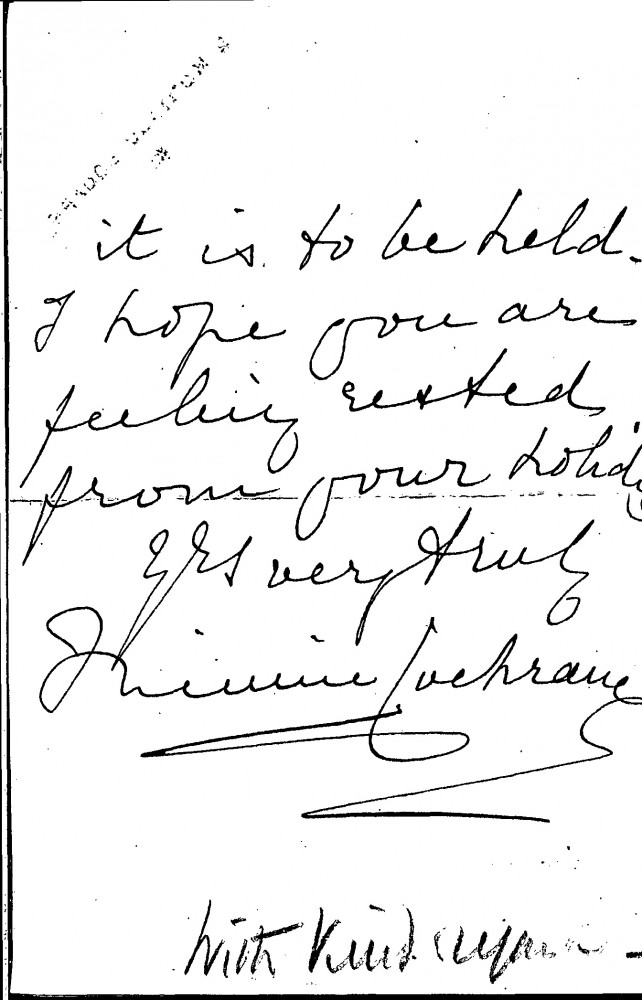 it is to be held.
I hope you are
feeling rested
from your holiday
Yrs very truly
Minnie Cochrane
With Kind